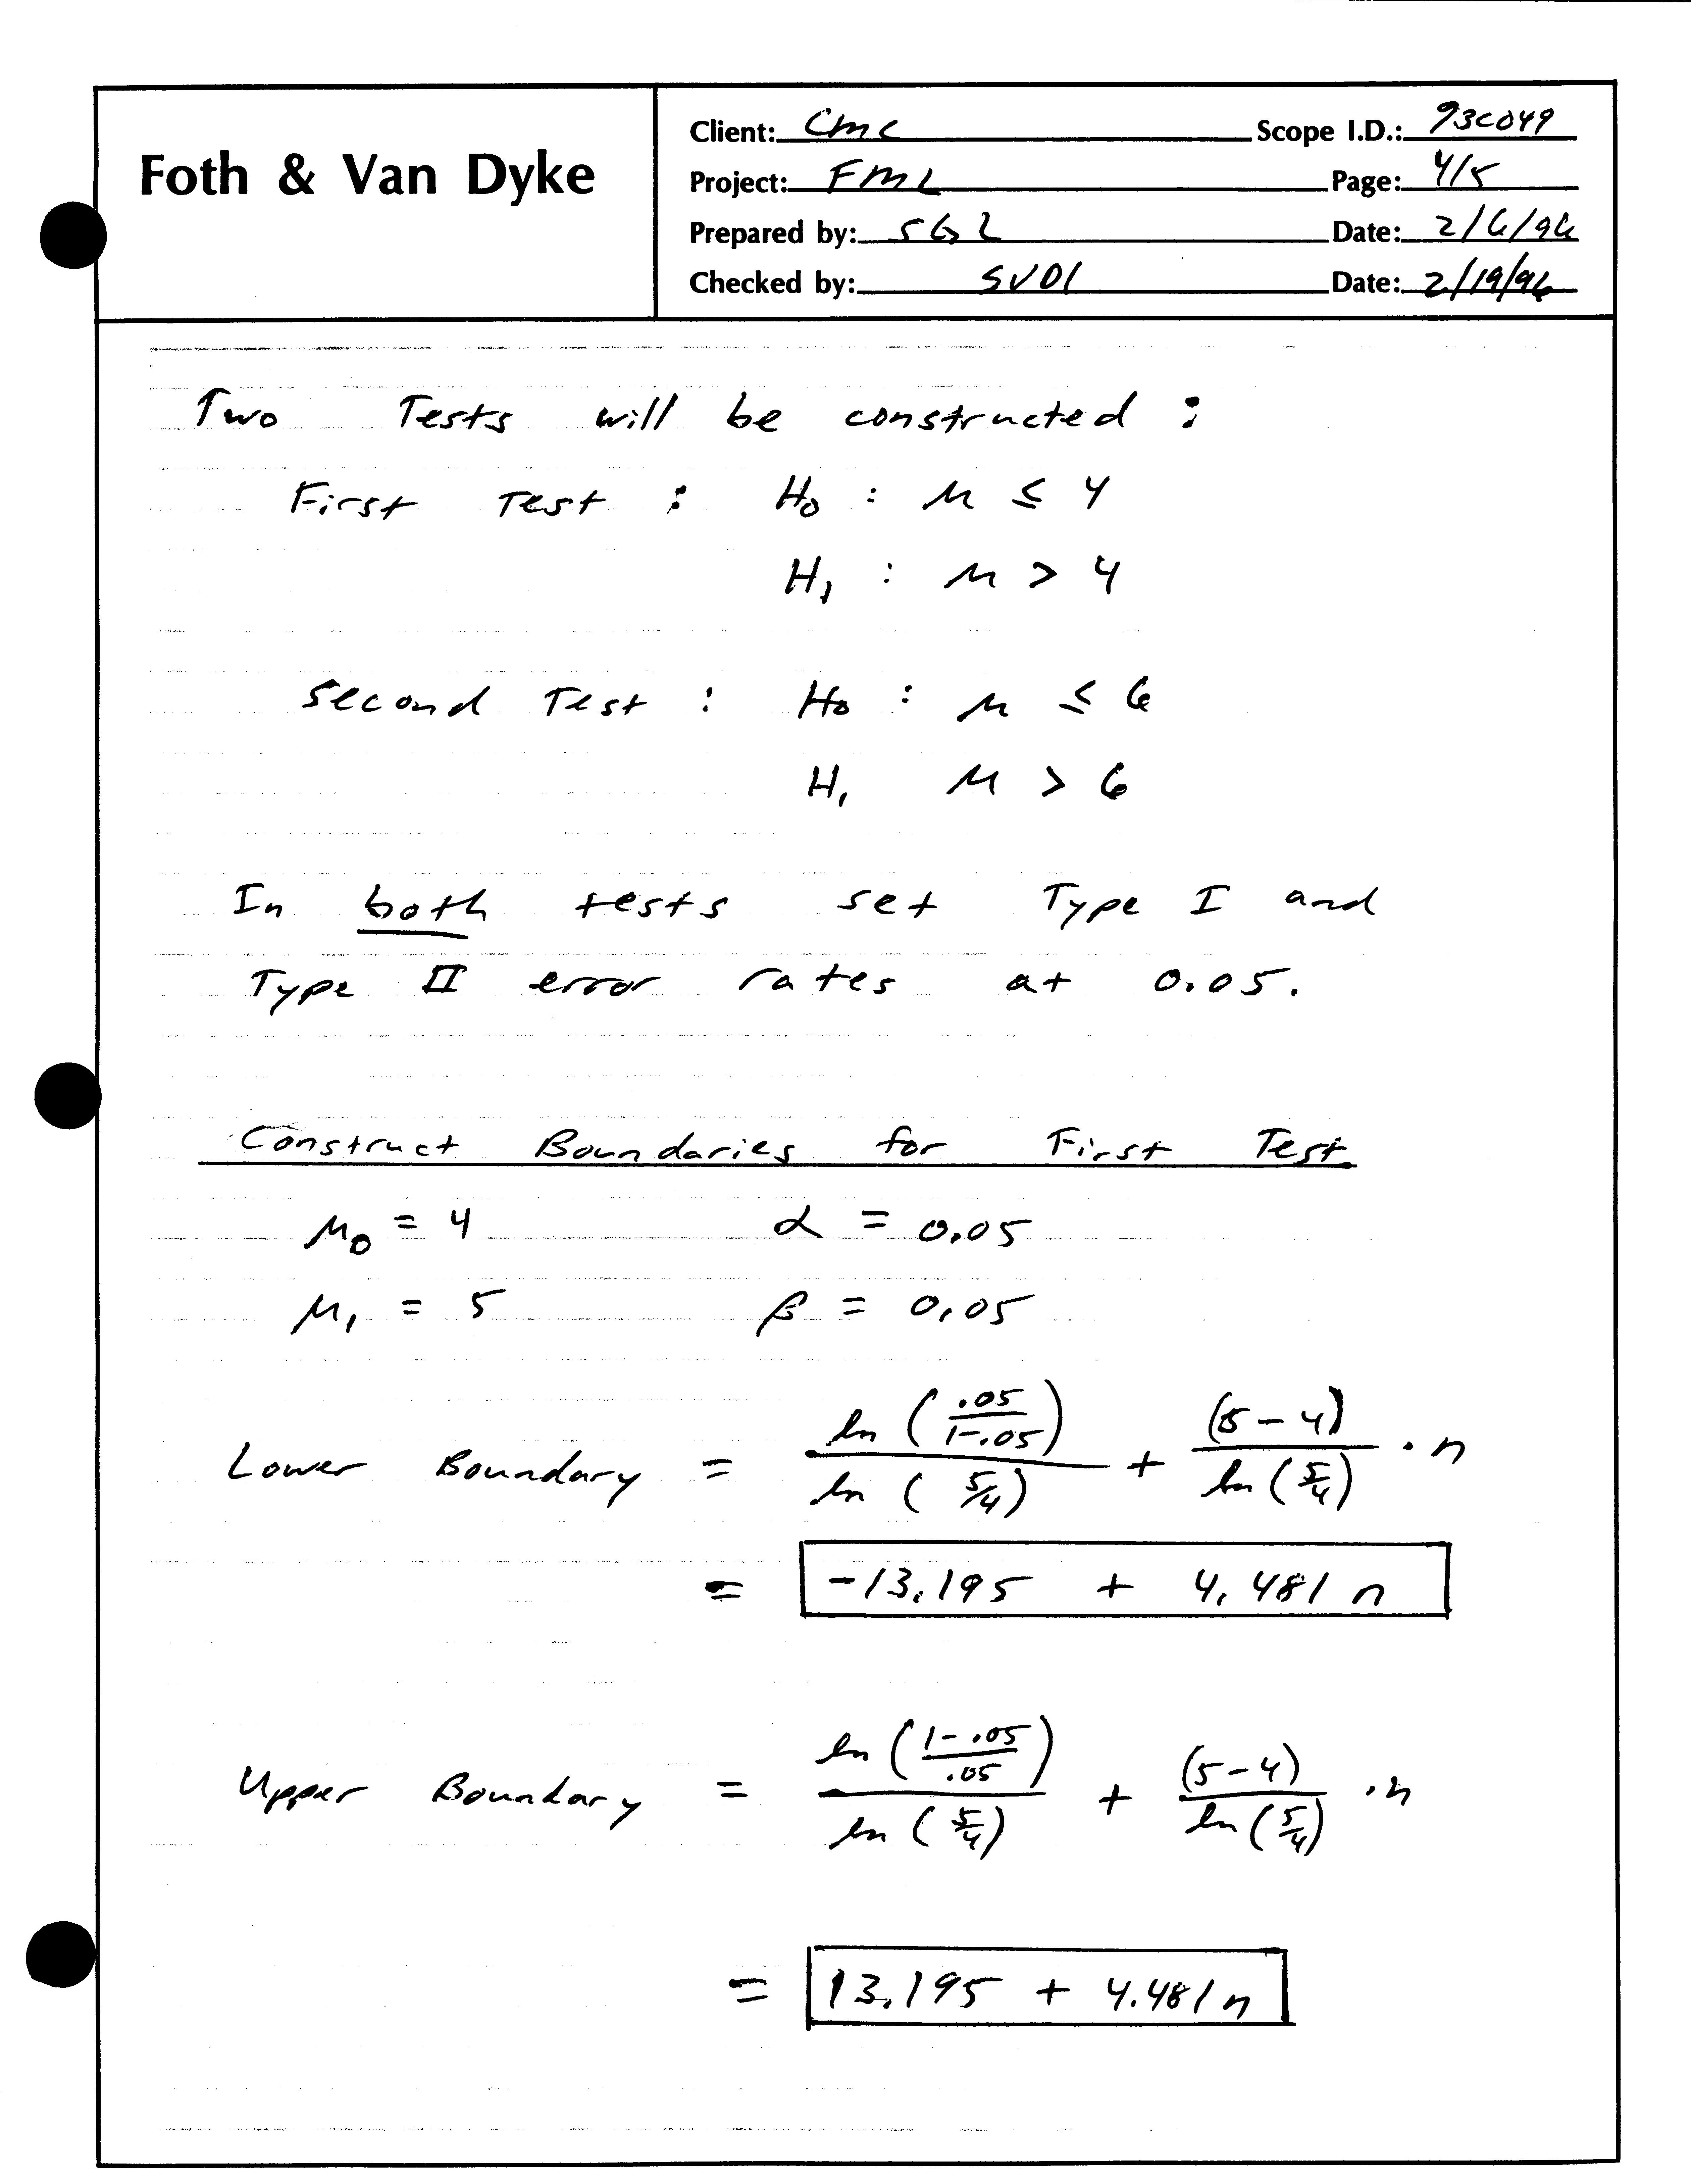 Foth & Van Dyke
Client: CMC Scope I.D.: 93C049
Project: FML Page: 4/5
Prepared by: SGL Date: 2/6/96
Checked by: SVD1 Date: 2/19/96
Two Tests will be constructed :
First Test : H₀ : μ ≤ 4
H₁ : μ > 4
Second Test : H₀ : μ ≤ 6
H₁ μ > 6
In both tests set Type I and
Type II error rates at 0.05.
Construct Boundaries for First Test
μ₀ = 4 α = 0.05
μ₁ = 5 β = 0.05
Lower Boundary = ln (.05/1-.05) / ln (5/4) + (5-4) / ln (5/4) · n
= -13.195 + 4.481 n
Upper Boundary = ln (1-.05/.05) / ln (5/4) + (5-4) / ln (5/4) · n
= 13.195 + 4.481 n